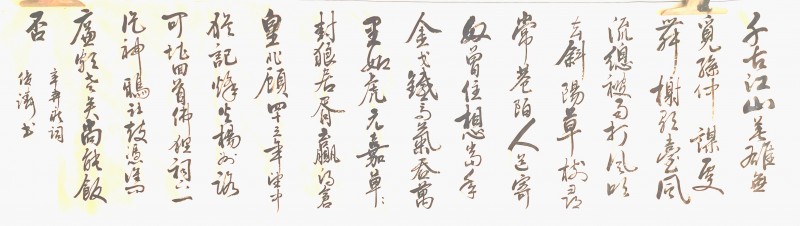 千古江山英雄無
覓孫仲謀處
舞榭歌臺風
流總被雨打風吹
去斜陽草樹尋
常巷陌人道寄
奴曾住想當年
金戈鐵馬氣吞萬
里如虎元嘉草〻
封狼居胥贏得倉
皇北顧四十三年望中
猶記烽火楊州路
可堪回首佛狸祠下一
片神鴉社鼓憑誰問
廉頗老矣尚能飯
否
辛棄疾詞
書